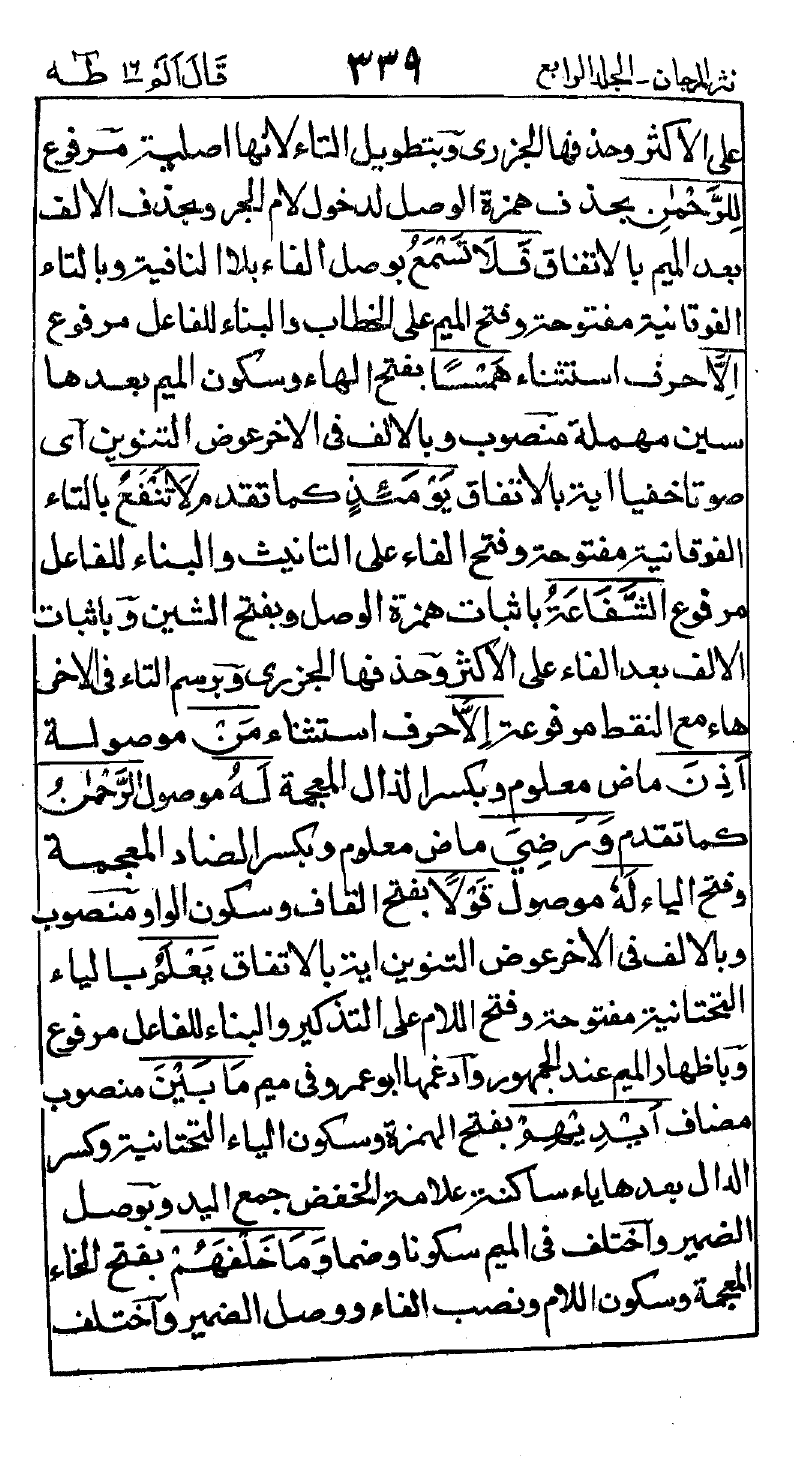 نثر المرجان - الجلد الرابع ٣٣٩ قَالَ اَلَمْ ١٦ طٰهٰ
على الاكثر وحذفها الجزرى وبتطويل التاء لانها اصلية مرفوع
لِلرَّحْمٰنِ بحذف همزة الوصل لدخول لام الجر وبحذف الالف
بعد الميم بالاتفاق فَلَا تَسْمَعُ بوصل الفاء بلا النافية وبالتاء
الفوقانية مفتوحة وفتح الميم على الخطاب والبناء للفاعل مرفوع
اِلَّا حرف استثناء هَمْسًا بفتح الهاء وسكون الميم بعدها
سين مهملة منصوب وبالالف فى الاخر عوض التنوين اى
صوتا خفيا اية بالاتفاق يَوْمَئِذٍ كما تقدم لَا تَنْفَعُ بالتاء
الفوقانية مفتوحة وفتح الفاء على التانيث والبناء للفاعل
مرفوع الشَّفَاعَةُ باثبات همزة الوصل وبفتح الشين وباثبات
الالف بعد الفاء على الاكثر وحذفها الجزرى وبرسم التاء فى الاخر
هاء مع النقط مرفوعة اِلَّا حرف استثناء مَنْ موصولة
اَذِنَ ماض معلوم وبكسر الذال المعجمة لَهُ موصول الرَّحْمٰنُ
كما تقدم وَرَضِيَ ماض معلوم وبكسر الضاد المعجمة
وفتح الياء لَهُ موصول قَوْلًا بفتح القاف وسكون الواو منصوب
وبالالف فى الاخر عوض التنوين اية بالاتفاق يَعْلَمُ بالياء
التحتانية مفتوحة وفتح اللام على التذكير والبناء للفاعل مرفوع
وباظهار الميم عند الجمهور وادغمها ابو عمرو فى ميم مَا بَيْنَ منصوب
مضاف اَيْدِيْهِمْ بفتح الهمزة وسكون الياء التحتانية وكسر
الدال بعدها ياء ساكنة علامة الخفض جمع اليد وبوصل
الضمير واختلف فى الميم سكونا وضما وَمَا خَلْفَهُمْ بفتح الخاء
المعجمة وسكون اللام ونصب الفاء ووصل الضمير واختلف